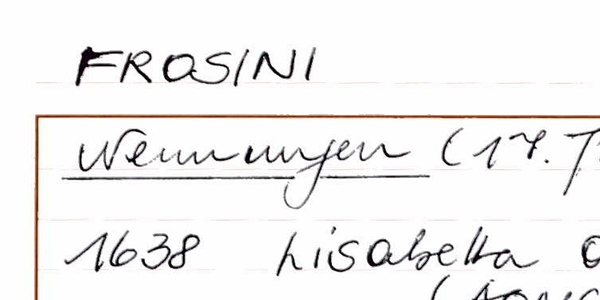 FROSINI
Nennungen (17.
1638 Lisabetta